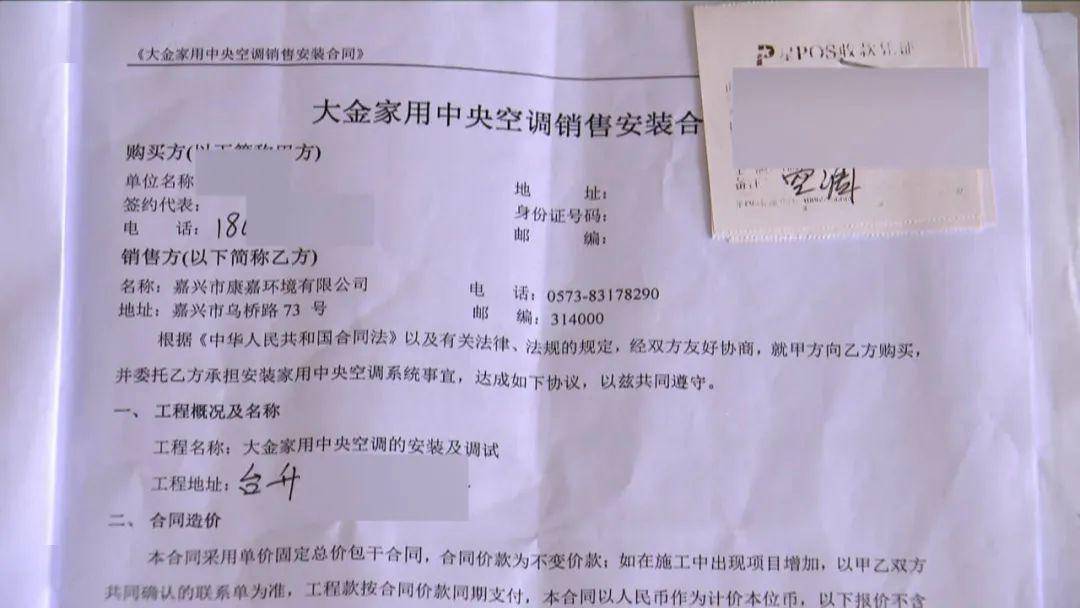 《大金家用中央空调销售安装合同》
POS收款凭证
大金家用中央空调销售安装合
空调
购买方(以下简称甲方)
单位名称
地 址：
签约代表：
身份证号码：
电 话：18
邮 编：
销售方(以下简称乙方)
名称：嘉兴市康嘉环境有限公司
电 话：0573-83178290
地址：嘉兴市乌桥路 73 号
邮 编：314000
根据《中华人民共和国合同法》以及有关法律、法规的规定，经双方友好协商，就甲方向乙方购买，
并委托乙方承担安装家用中央空调系统事宜，达成如下协议，以兹共同遵守。
一、 工程概况及名称
工程名称：大金家用中央空调的安装及调试
工程地址：台升
二、 合同造价
本合同采用单价固定总价包干合同，合同价款为不变价款；如在施工中出现项目增加，以甲乙双方
共同确认的联系单为准，工程款按合同价款同期支付，本合同以人民币作为计价本位币，以下报价不含